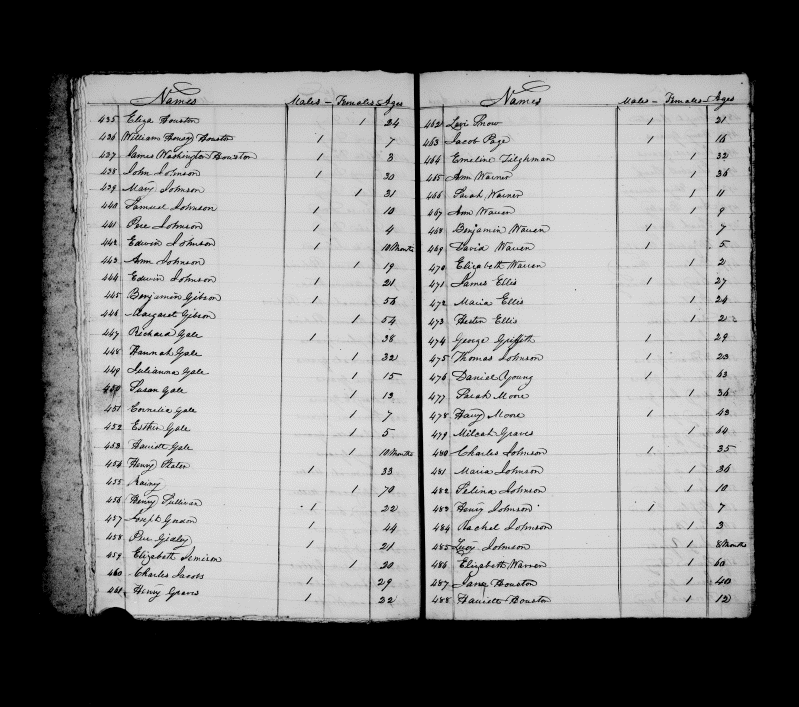 Names Males - Females - Ages
435 Eliza Houston 1 24
436 William Henry Houston 1 7
437 James Washington Houston 1 3
438 John Johnson 1 30
439 Mary Johnson 1 31
440 Samuel Johnson 1 10
441 Pere Johnson 1 4
442 Edwin Johnson 1 10 Months
443 Ann Johnson 1 19
444 Edwin Johnson 1 21
445 Benjamin Gibson 1 56
446 Margaret Gibson 1 54
447 Richard Gale 1 38
448 Hannah Gale 1 32
449 Julianna Gale 1 15
450 Susan Gale 1 13
451 Cornelia Gale 1 7
452 Esther Gale 1 5
453 Harriett Gale 1 10 Months
454 Henry Plater 1 33
455 Rainy 1 70
456 Henry Sullivan 1 22
457 Joseph Gordon 1 44
458 Pere 1 21
459 Elizabeth Jemison 1 20
460 Charles Jacobs 1 29
461 Henry Graves 1 22
Names Males - Females - Ages
462 Levi Snow 1 21
463 Jacob Page 1 16
464 Emeline Tilghman 1 32
465 Ann Warner 1 36
466 Sarah Warner 1 11
467 Ann Warren 1 9
468 Benjamin Warren 1 7
469 David Warren 1 5
470 Elizabeth Warren 1 2
471 James Ellis 1 27
472 Maria Ellis 1 24
473 Hester Ellis 1 2
474 George Griffith 1 29
475 Thomas Johnson 1 23
476 Daniel Young 1 63
477 Sarah Moore 1 36
478 Harry Moore 1 43
479 Milcah Graves 1 64
480 Charles Johnson 1 35
481 Maria Johnson 1 36
482 Selina Johnson 1 10
483 Henry Johnson 1 7
484 Rachel Johnson 1 3
485 Lucy Johnson 1 8 Months
486 Elizabeth Warren 1 60
487 Jane Houston 1 40
488 Harriett Houston 1 12